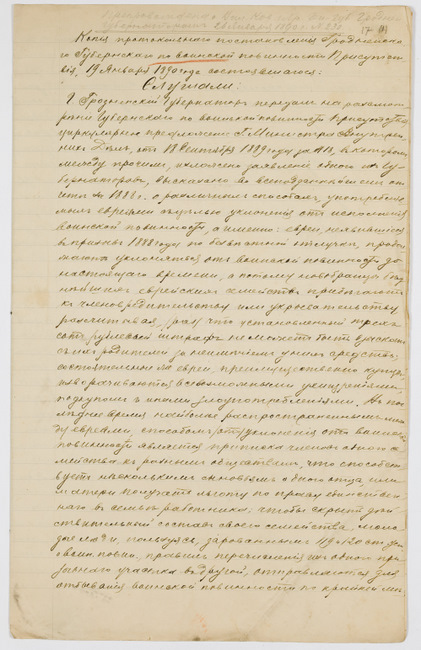 Копія протокольнаго постановленія Гродненска-
го Губернскаго по воинской повинности Присутст-
вія, 19 Января 1890 года состоявшагося:
Слушали:
Г. Гродненскій Губернаторъ передалъ на разсмот-
рѣніе Губернскаго по воинской повинности Присутствія
циркулярное предложеніе Г. Министра Внутрен-
нихъ Дѣлъ, отъ 18 Сентября 1889 года за №18, въ которомъ
между прочимъ, изложено заявленіе одного изъ Гу-
бернаторовъ, высказано во всеподданнѣйшемъ от-
четѣ за 1888 г. о различныхъ способахъ, употребляе-
мыхъ евреями съ цѣлью уклоненія отъ исполненія
воинской повинности, а именно: евреи, неявившіеся
въ призывъ 1888 года по
уклоняться отъ воинской повинности до
настоящаго времени, а потому новобранцы
еврейскихъ семействъ прибѣгаютъ
къ членовредительству или укрывательству,
разсчитывая, что установленный трех-
сотъ рублевый штрафъ не можетъ быть взысканъ
съ ихъ родителей за неимѣніемъ у нихъ средствъ,
состоятельные же евреи, преимущественно купцы,
изворачиваются всевозможными ухищреніями,
подкупомъ и иными злоупотребленіями. Въ пос-
лѣднее время наиболѣе распространеннымъ меж-
ду евреями, способомъ уклоненія отъ воинской
повинности является приписка членовъ одного се-
мейства къ разнымъ обществамъ, что способст-
вуетъ нѣсколькимъ сыновьямъ одного отца, или
матери получать льготу по праву единствен-
наго въ семьѣ работника, чтобы скрыть дѣй-
ствительный составъ своего семейства, моло-
дые люди, пользуясь, дарованнымъ 119 и 120 ст. Ус.
о воин. повин. правомъ перечисленія изъ одного при-
зывнаго участка въ другой, отправляются для
отбыванія воинской повинности по крайней мѣ-